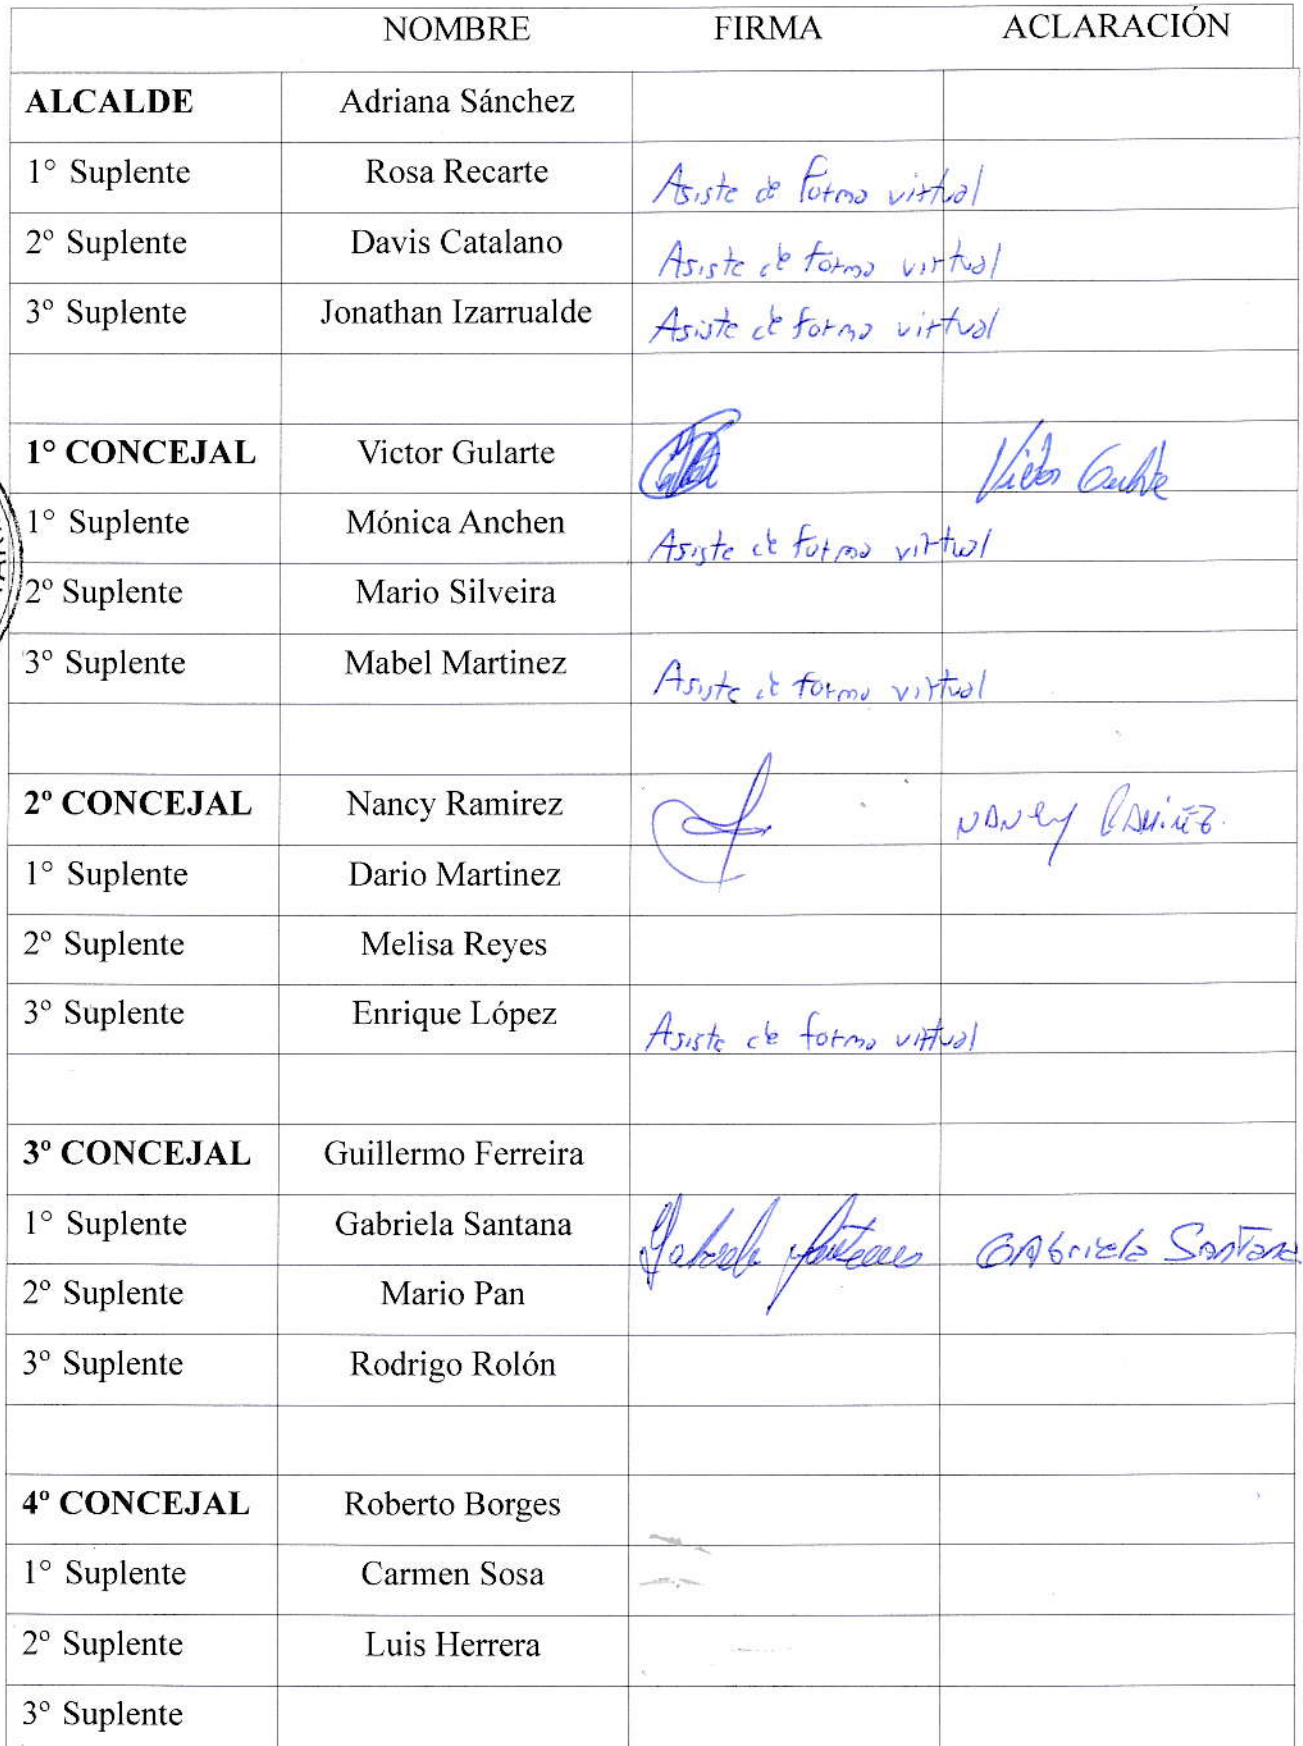 NOMBRE FIRMA ACLARACIÓN
ALCALDE Adriana Sánchez
1° Suplente Rosa Recarte Asiste de forma virtual
2º Suplente Davis Catalano Asiste de forma virtual
3º Suplente Jonathan Izarrualde Asiste de forma virtual
1° CONCEJAL Victor Gularte Victor Gularte
1° Suplente Mónica Anchen Asiste de forma virtual
2º Suplente Mario Silveira
3º Suplente Mabel Martinez Asiste de forma virtual
2º CONCEJAL Nancy Ramirez NANCY RAMIREZ.
1° Suplente Dario Martinez
2º Suplente Melisa Reyes
3º Suplente Enrique López Asiste de forma virtual
3º CONCEJAL Guillermo Ferreira
1° Suplente Gabriela Santana Gabriela Santana GAbriela Santana
2º Suplente Mario Pan
3º Suplente Rodrigo Rolón
4º CONCEJAL Roberto Borges
1° Suplente Carmen Sosa
2º Suplente Luis Herrera
3º Suplente